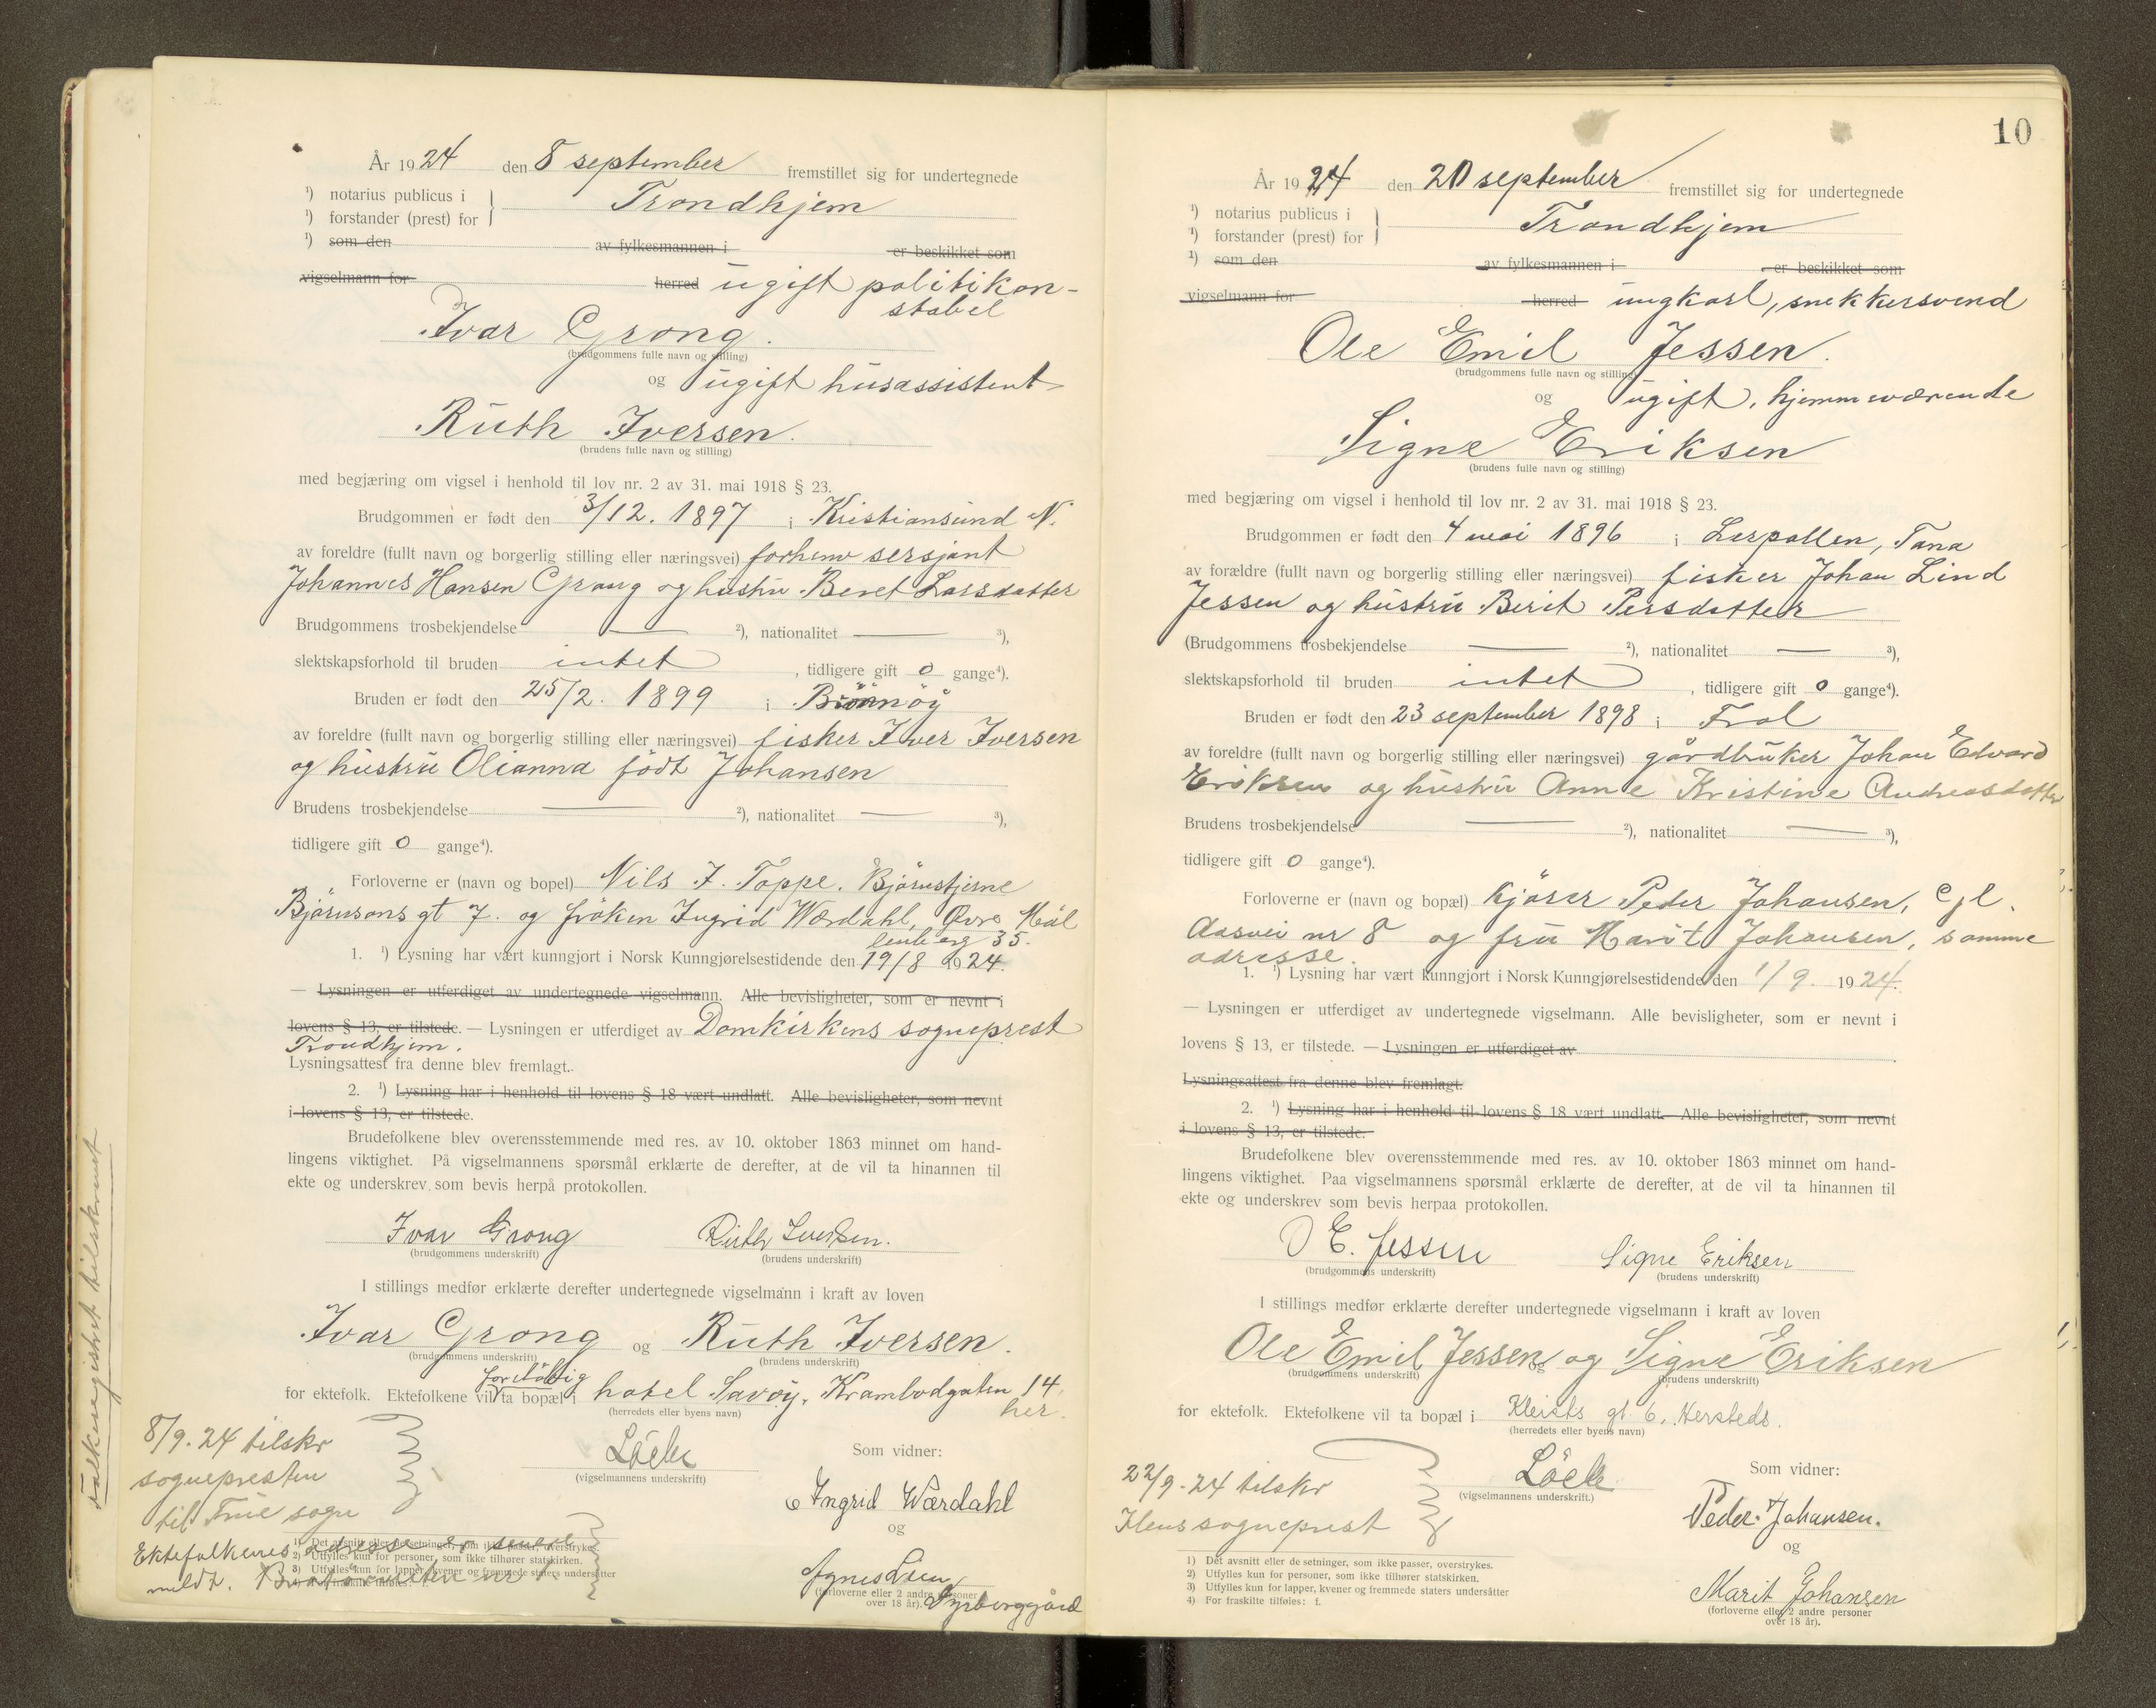 År 1924 den 8 september fremstillet sig for undertegnede
¹) notarius publicus i
¹) forstander (prest) for } Trondhjem
¹) som den av fylkesmannen i er beskikket som
vigselmann for herred ugift politikon-
stabel
Ivar Grong.
(brudgommens fulle navn og stilling)
og ugift husassistent
Ruth Iversen.
(brudens fulle navn og stilling)
med begjæring om vigsel i henhold til lov nr. 2 av 31. mai 1918 § 23.
Brudgommen er født den 3/12. 1897 i Kristiansund N.
av foreldre (fullt navn og borgerlig stilling eller næringsvei) forhenv sersjant
Johannes Hansen Grong og hustru Beret Larsdatter
Brudgommens trosbekjendelse — ²), nationalitet — ³),
slektskapsforhold til bruden intet, tidligere gift 0 gange⁴).
Bruden er født den 25/2. 1899 i Brönnöy
av foreldre (fullt navn og borgerlig stilling eller næringsvei) fisker Iver Iversen
og hustru Olianna född Johansen
Brudens trosbekjendelse — ²), nationalitet — ³),
tidligere gift 0 gange⁴).
Forloverne er (navn og bopel) Nils J. Toppe. Björnstjerne
Björnsons gt 7. og fröken Ingrid Wærdahl, Øvre Möl
lenberg 35.
1. ¹) Lysning har vært kunngjort i Norsk Kunngjørelsestidende den 19/8 1924.
— Lysningen er utferdiget av undertegnede vigselmann. Alle bevisligheter, som er nevnt i
lovens § 13, er tilstede. — Lysningen er utferdiget av Domkirkens sogneprest
Trondhjem.
Lysningsattest fra denne blev fremlagt.
2. ¹) Lysning har i henhold til lovens § 18 vært undlatt. Alle bevisligheter, som nevnt
i lovens § 13, er tilstede.
Brudefolkene blev overensstemmende med res. av 10. oktober 1863 minnet om hand-
lingens viktighet. På vigselmannens spørsmål erklærte de derefter, at de vil ta hinannen til
ekte og underskrev som bevis herpå protokollen.
Ivar Grong Ruth Iversen.
(brudgommens underskrift) (brudens underskrift)
I stillings medfør erklærte derefter undertegnede vigselmann i kraft av loven
Ivar Grong og Ruth Iversen.
(brudgommens underskrift) (brudens underskrift)
foreløbig
for ektefolk. Ektefolkene vil ta bopæl i hotel Savoy, Krambodgaten 14,
her.
(herredets eller byens navn)
8/9. 24 tilskr
sognepresten
til Frue sogn
Löch
(vigselmannens underskrift)
Som vidner:
Ingrid Wærdahl
og
Agnes Lien
(forloverne eller 2 andre personer
over 18 år). Dyrborggård
Ektefolkenes adresse er senere
meldt.
1) Det avsnitt eller de setninger, som ikke passer, overstrykes.
2) Utfylles kun for personer, som ikke tilhører statskirken.
3) Utfylles kun for lapper, kvener og fremmede staters undersåtter
Folkeregistret tilskrevet
10
År 1924 den 20 september fremstillet sig for undertegnede
¹) notarius publicus i
¹) forstander (prest) for } Trondhjem
¹) som den av fylkesmannen i er beskikket som
vigselmann for herred ungkarl, snekkersvend
Ole Emil Jessen.
(brudgommens fulle navn og stilling)
og ugift, hjemmeværende
Signe Eriksen
(brudens fulle navn og stilling)
med begjæring om vigsel i henhold til lov nr. 2 av 31. mai 1918 § 23.
Brudgommen er født den 4 mai 1896 i Lerpollen, Tana
av forældre (fullt navn og borgerlig stilling eller næringsvei) fisker Johan Lind
Jessen og hustru Berit Persdatter
(Brudgommens trosbekjendelse — ²), nationalitet — ³),
slektskapsforhold til bruden intet, tidligere gift 0 gange⁴).
Bruden er født den 23 september 1898 i Frol
av foreldre (fullt navn og borgerlig stilling eller næringsvei) gårdbruker Johan Edvard
Eriksen og hustru Anne Kristine Andreasdatter
Brudens trosbekjendelse — ²), nationalitet — ³),
tidligere gift 0 gange⁴).
Forloverne er (navn og bopæl) kjörer Peder Johansen, Egl.
Aasvei nr 8 og fru Marit Johansen, samme
adresse.
1. ¹) Lysning har vært kunngjort i Norsk Kunngjørelsestidende den 1/9. 1924.
— Lysningen er utferdiget av undertegnede vigselmann. Alle bevisligheter, som er nevnt i
lovens § 13, er tilstede. — Lysningen er utferdiget av
Lysningsattest fra denne blev fremlagt.
2. ¹) Lysning har i henhold til lovens § 18 vært undlatt. Alle bevisligheter, som nevnt
i lovens § 13, er tilstede.
Brudefolkene blev overensstemmende med res. av 10. oktober 1863 minnet om hand-
lingens viktighet. Paa vigselmannens spørsmål erklærte de derefter, at de vil ta hinannen til
ekte og underskrev som bevis herpaa protokollen.
O E. Jessen Signe Eriksen
(brudgommens underskrift) (brudens underskrift)
I stillings medfør erklærte derefter undertegnede vigselmann i kraft av loven
Ole Emil Jessen og Signe Eriksen
(brudgommens underskrift) (brudens underskrift)
for ektefolk. Ektefolkene vil ta bopæl i Kleists gt 6, Hersteds.
(herredets eller byens navn)
22/9-24 tilskr
sogneprest
Löch
(vigselmannens underskrift.)
Som vidner:
Peder Johansen.
og
Marit Johansen
(forloverne eller 2 andre personer
over 18 år).
1) Det avsnitt eller de setninger, som ikke passer, overstrykes.
2) Utfylles kun for personer, som ikke tilhører statskirken.
3) Utfylles kun for lapper, kvener og fremmede staters undersåtter
4) For fraskilte tilføies: f.